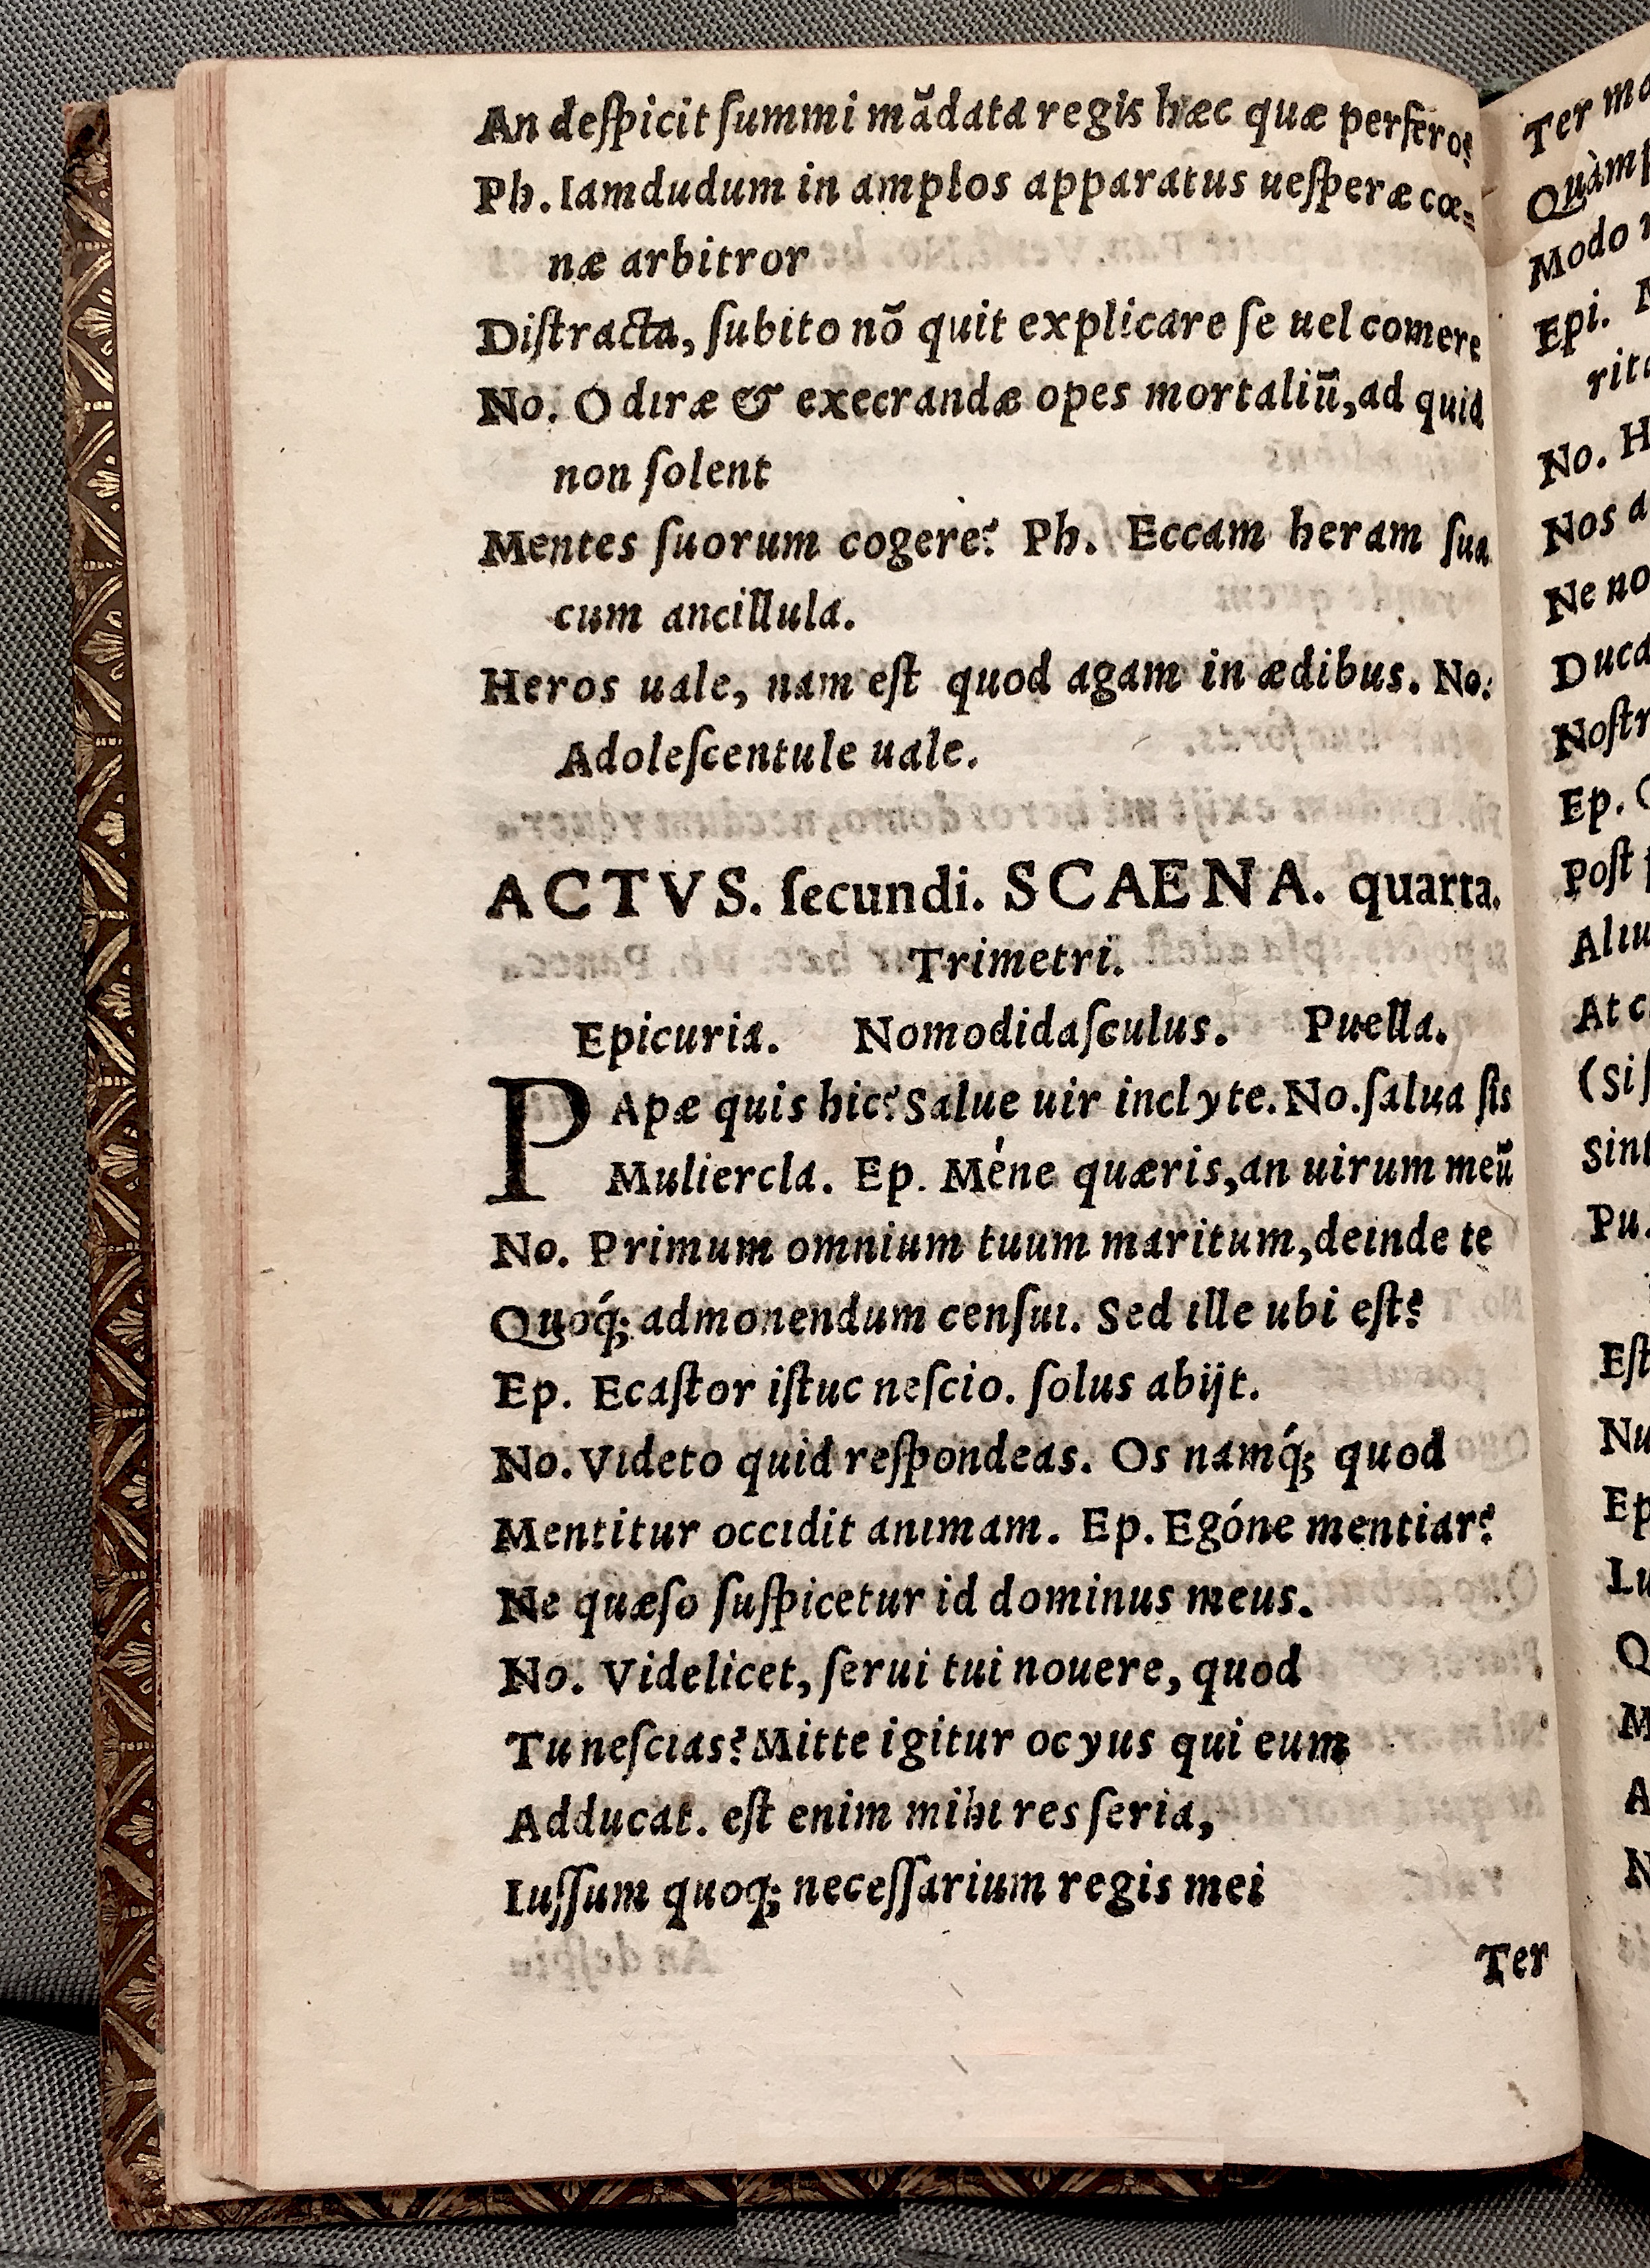 An deſpicit ſummi mãdata regis hæc quæ perfero?
Ph. Iamdudum in amplos apparatus ueſperæ cœ-
næ arbitror
Diſtracta, ſubito nõ quit explicare ſe uel comere
No. O diræ & execrandæ opes mortaliũ, ad quid
non ſolent
Mentes ſuorum cogere? Ph. Eccam heram ſua
cum ancillula.
Heros uale, nam eſt quod agam in ædibus. No.
Adoleſcentule uale.
ACTVS. ſecundi. SCAENA. quarta.
Trimetri.
Epicuria. Nomodidaſculus. Puella.
PApæ quis hic? Salue uir inclyte. No. ſalua ſis
Muliercla. Ep. Méne quæris, an uirum meũ
No. Primum omnium tuum maritum, deinde te
Quoq́; admonendum cenſui. Sed ille ubi eſt?
Ep. Ecaſtor iſtuc neſcio. ſolus abijt.
No. Videto quid reſpondeas. Os namq́; quod
Mentitur occidit animam. Ep. Egóne mentiar?
Ne quæſo ſuſpicetur id dominus meus.
No. Videlicet, ſerui tui nouere, quod
Tu neſcias? Mitte igitur ocyus qui eum
Adducat. eſt enim mihi res ſeria,
Iuſſum quoq; neceſſarium regis mei
Ter
Ter
Modo
Epi.
No. H
Nos a
Ne no
Duca
Noſtr
Ep.
Poſt
Aliu
At c
(Si ſ
Sint
Pu.
Eſt
Nu
Ep
Lu
Q
M
A
N